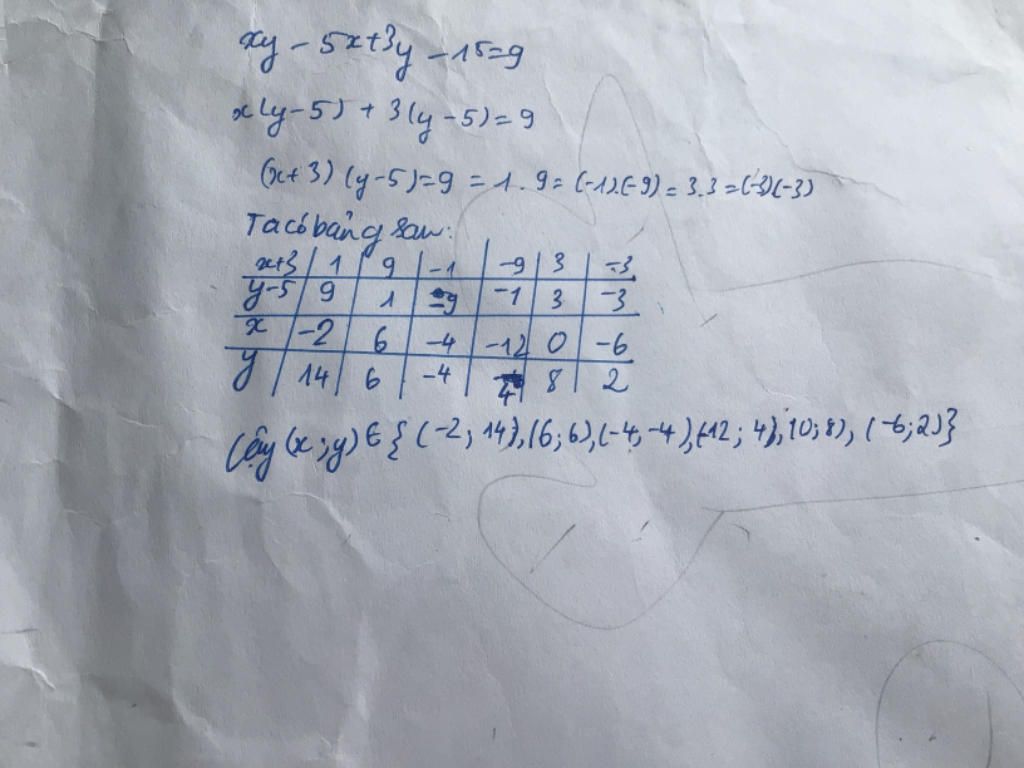 xy - 5x+3y - 15=9
x(y-5) + 3(y-5)=9
(x+3) (y-5)=9 = 1.9= (-1).(-9) = 3.3 =(-3)(-3)
Ta có bảng sau:
x+3 1 9 -1 -9 3 -3
y-5 9 1 -9 -1 3 -3
x -2 6 -4 -12 0 -6
y 14 6 -4 4 8 2
Cậy (x;y) ∈ { (-2; 14), (6;6), (-4,-4), (-12; 4), (0;8), (-6;2)}